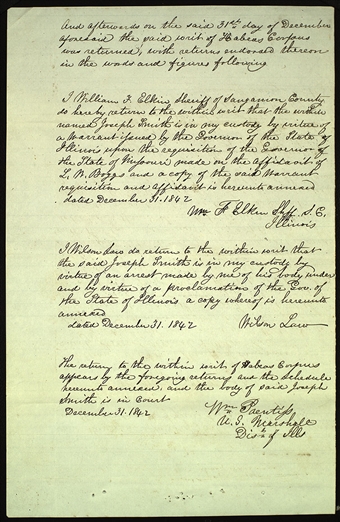 And afterwards on the said 31st day of December
aforesaid the said writ of Habeas Corpus
was returned, with returns endorsed thereon
in the words and figures following
I William F. Elkin Sheriff of Sangamon County
do hereby return to the within writ that the within
named Joseph Smith is in my custody by virtue of
a warrant issued by the Governor of the State of
Illinois upon the requisition of the Governor of
the State of Missouri made on the affidavit of
L. W. Boggs and a copy of the said Warrant
requisition and affidavit is hereunto annexed
dated December 31. 1842
Wm F Elkin Shff S. C.
Illinois
I Wilson Law do return to the within writ that
the said Joseph Smith is in my custody by
virtue of an arrest made by me of his body, under
and by virtue of a proclamation of the Gov. of
the State of Illinois a copy whereof is hereunto
annexed
dated December 31. 1842 Wilson Law
The return to the within writ of Habeas Corpus
appears by the foregoing return and the schedule
hereunto annexed, and the body of said Joseph
Smith is in Court
December 31. 1842
Wm Prentiss
U. S. Marshall
Dist of Ills